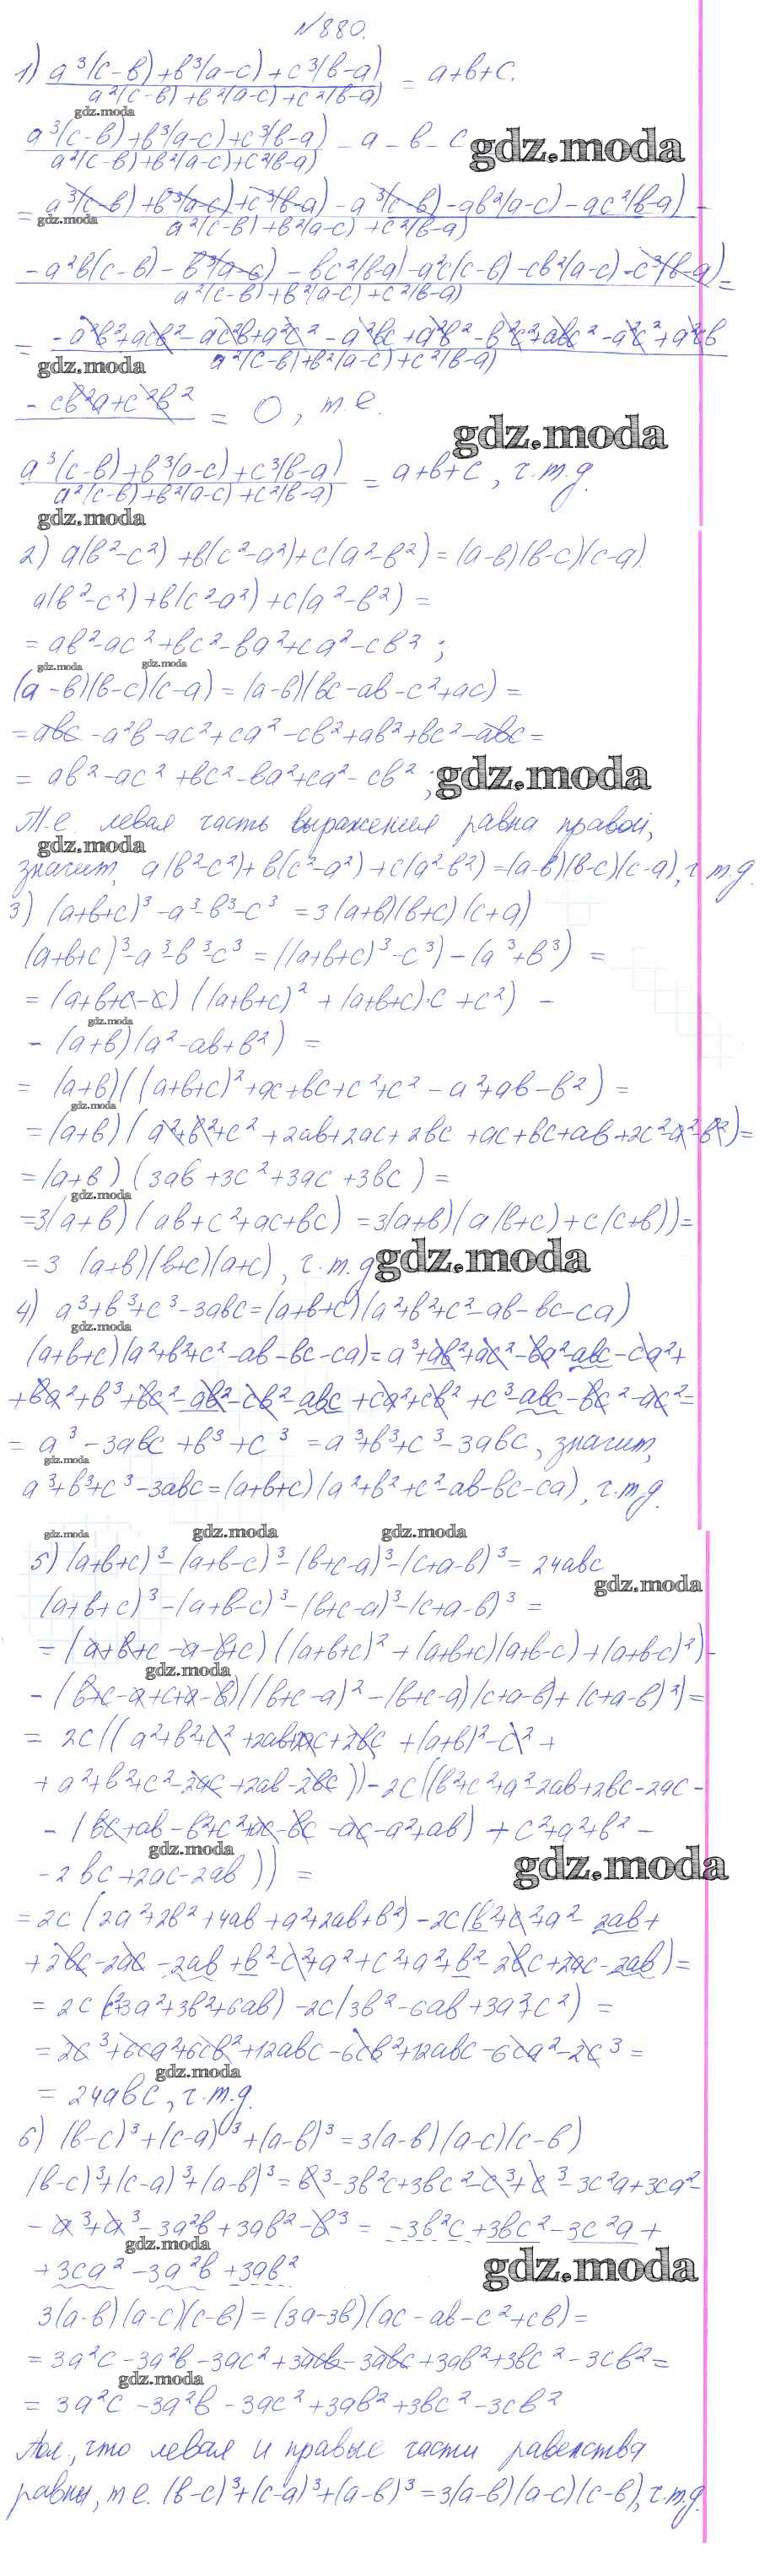 №880.
1) a³(c-в)+в³(a-c)+c³(в-a) / a²(c-в)+в²(a-c)+c²(в-a) = a+в+c.
gdz.moda
a³(c-в)+в³(a-c)+c³(в-a) / a²(c-в)+в²(a-c)+c²(в-a) - a - в - c
gdz.moda
= a³(c-в)+в³(a-c)+c³(в-a)-a³(c-в)-aв²(a-c)-ac²(в-a) / a²(c-в)+в²(a-c)+c²(в-a) -
gdz.moda
-a²в(c-в)-в³(a-c)-вc²(в-a)-a²c(c-в)-cв²(a-c)-c³(в-a) / a²(c-в)+в²(a-c)+c²(в-a) =
= -a²в²+acв²-ac²в+a²c²-a²вc+a²в²-в²c²+aвc²-a²c²+a²cв / a²(c-в)+в²(a-c)+c²(в-a)
gdz.moda
-cв²a+c²в² = 0, т.е.
gdz.moda
a³(c-в)+в³(a-c)+c³(в-a) / a²(c-в)+в²(a-c)+c²(в-a) = a+в+c, ч.т.д.
gdz.moda
2) a(в²-c²)+в(c²-a²)+c(a²-в²)=(a-в)(в-c)(c-a).
a(в²-c²)+в(c²-a²)+c(a²-в²)=
= aв²-ac²+вc²-вa²+ca²-cв²;
gdz.moda gdz.moda
(a-в)(в-c)(c-a)=(a-в)(вc-aв-c²+ac)=
=aвc-a²в-ac²+ca²-cв²+aв²+вc²-aвc=
= aв²-ac²+вc²-вa²+ca²-cв²;
gdz.moda
Т.е. левая часть выражения равна правой,
gdz.moda
значит, a(в²-c²)+в(c²-a²)+c(a²-в²)=(a-в)(в-c)(c-a), ч.т.д.
3) (a+в+c)³-a³-в³-c³=3(a+в)(в+c)(c+a)
(a+в+c)³-a³-в³-c³=((a+в+c)³-c³)-(a³+в³)=
=(a+в+c-c)((a+в+c)²+(a+в+c)·c+c²)-
gdz.moda
-(a+в)(a²-aв+в²)=
=(a+в)((a+в+c)²+ac+вc+c²+c²-a²+aв-в²)=
gdz.moda
=(a+в)(a²+в²+c²+2aв+2ac+2вc+ac+вc+aв+2c²-a²-в²)=
=(a+в)(3aв+3c²+3ac+3вc)=
gdz.moda
=3(a+в)(aв+c²+ac+вc)=3(a+в)(a(в+c)+c(c+в))=
=3(a+в)(в+c)(a+c), ч.т.д.
gdz.moda
4) a³+в³+c³-3aвc=(a+в+c)(a²+в²+c²-aв-вc-ca)
gdz.moda
(a+в+c)(a²+в²+c²-aв-вc-ca)=a³+aв²+ac²-вa²-aвc-ca²+
+вa²+в³+вc²-aв²-cв²-aвc+ca²+cв²+c³-aвc-вc²-ac²=
= a³-3aвc+в³+c³=a³+в³+c³-3aвc, значит,
gdz.moda
a³+в³+c³-3aвc=(a+в+c)(a²+в²+c²-aв-вc-ca), ч.т.д.
gdz.moda gdz.moda gdz.moda
5) (a+в+c)³-(a+в-c)³-(в+c-a)³-(c+a-в)³=24aвc
gdz.moda
(a+в+c)³-(a+в-c)³-(в+c-a)³-(c+a-в)³=
=(a+в+c-a-в+c)((a+в+c)²+(a+в+c)(a+в-c)+(a+в-c)²)-
gdz.moda
-(в+c-a+c+a-в)((в+c-a)²-(в+c-a)(c+a-в)+(c+a-в)²)=
= 2c((a²+в²+c²+2aв+2ac+2вc+(a+в)²-c²+
+a²+в²+c²-2ac+2aв-2вc))-2c((в²+c²+a²-2aв+2вc-2ac-
-(вc+aв-в²+c²+ac-вc-ac-a²+aв)+c²+a²+в²-
gdz.moda
-2вc+2ac-2aв))=
gdz.moda
=2c(2a²+2в²+4aв+a²+2aв+в²)-2c(в²+c²+a²-2aв+
+2вc-2ac-2aв+в²-c²+a²+c²+a²+в²-2вc+2ac-2aв)=
=2c(c²+3a²+3в²+6aв)-2c(3в²-6aв+3a²+c²)=
=2c³+6ca²+6cв²+12aвc-6cв²+12aвc-6ca²-2c³=
gdz.moda
= 24aвc, ч.т.д.
6) (в-c)³+(c-a)³+(a-в)³=3(a-в)(a-c)(c-в)
(в-c)³+(c-a)³+(a-в)³=в³-3в²c+3вc²-c³+c³-3c²a+3ca²-
-a³+a³-3a²в+3aв²-в³=-3в²c+3вc²-3c²a+
gdz.moda
+3ca²-3a²в+3aв²
gdz.moda
3(a-в)(a-c)(c-в)=(3a-3в)(ac-aв-c²+cв)=
=3a²c-3a²в-3ac²+3acв-3aвc+3aв²+3вc²-3cв²=
gdz.moda
= 3a²c-3a²в-3ac²+3aв²+3вc²-3cв²
Пол., что левая и правые части равенства
равны, т.е. (в-c)³+(c-a)³+(a-в)³=3(a-в)(a-c)(c-в), ч.т.д.